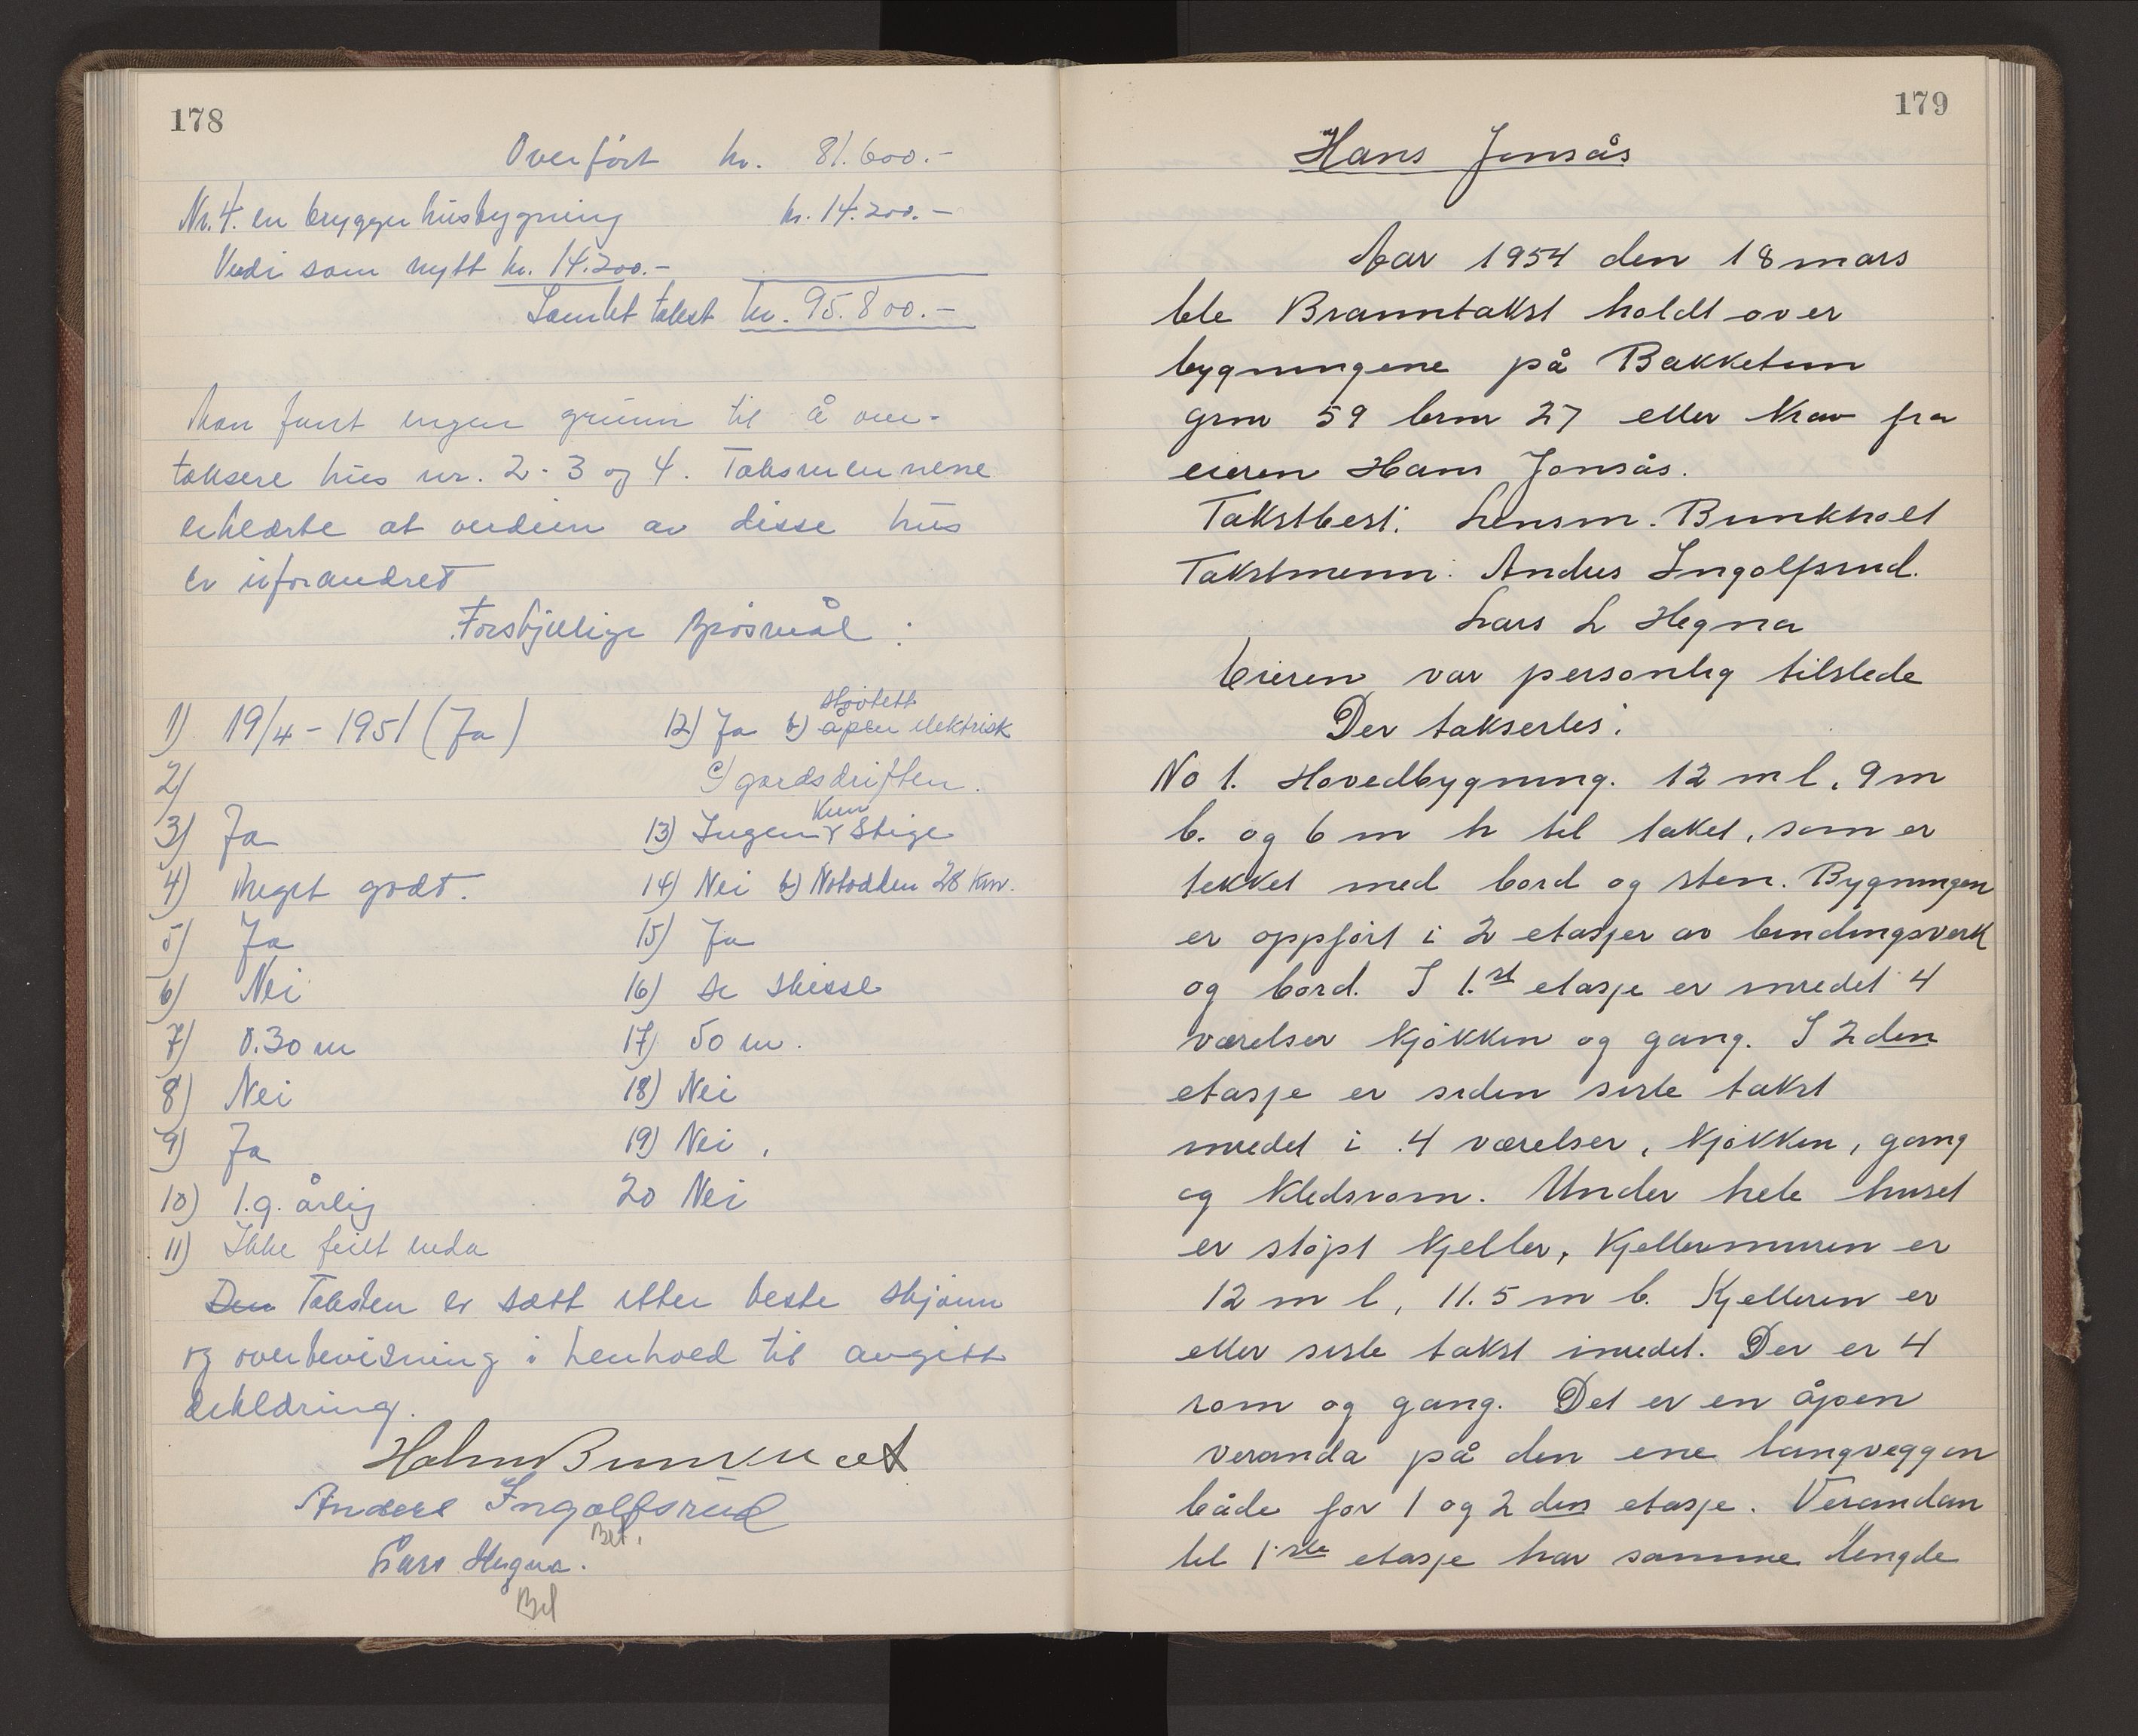 178
Overført kr. 81.600.-
Nr. 4. en bryggerhusbygning kr. 14.200.-
Verdi som nytt kr. 14.200.-
Samlet takst kr. 95.800.-
Man fant ingen grunn til å om-
taksere hus nr. 2-3 og 4. Taksmennene
erklærte at verdien av disse hus
er uforandret
Forskjellige spørsmål:
1) 19/4 - 1951 (Ja)
2)
3) Ja
4) Meget godt.
5) Ja
6) Nei
7) 0.30 m
8) Nei
9) Ja
10) 1.g. årlig
11) Ikke feilt enda
støvtett
12) Ja b) åpen elektrisk
c) gardsdriften.
Kun
13) Ingen Stige
14) Nei b) Notodden 28 km.
15) Ja
16) Se skisse
17) 50 m.
18) Nei
19) Nei.
20 Nei
Den Taksten er satt etter beste skjønn
og overbevisning i henhold til avgitt
erklæring.
Holm Bunkholt
Anders Ingolfsrud
Bet.
Lars Hegna.
Bet
179
Hans Jonsås
Aar 1954 den 18 mars
ble Branntakst holdt over
bygningene på Bakketun
grnr 59 brnr 27 etter krav fra
eieren Hans Jonsås.
Takstbest: Lensm. Bunkholt
Takstmenn: Andres Ingolfsrud.
Lars L Hegna
Eieren var personlig tilstede
Der takserles:
No 1. Hovedbygning. 12 m l, 9 m
b. og 6 m h til taket, som er
tekket med bord og sten. Bygningen
er oppført i 2 etasjer av bindingsverk
og bord. I 1.st etasje er inredet 4
værelser kjøkken og gang. I 2 den
etasje er siden siste takst
inredet i 4 værelser, kjøkken, gang
og kledsrom. Under hele huset
er støpt kjeller, kjellermuren er
12 m l, 11.5 m b. Kjelleren er
etter siste takst inredet. Der er 4
rom og gang. Det er en åpen
veranda på den ene langveggen
både for 1 og 2 den etasje. Verandan
til 1ste etasje har samme lengde